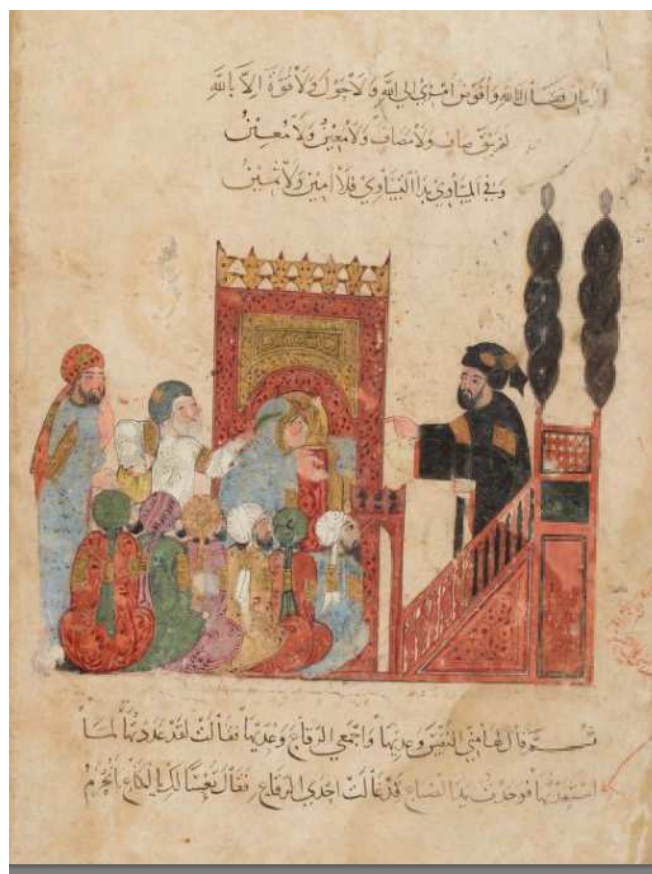 وأفوض أمري إلى الله ولا حول ولا قوة إلا بالله
لم يبق صاف ولا مصاف ولا معين ولا معين
وفي المساوي بدا التساوي فلا أمين ولا ثمين
ثم قال لها مني النفس وعديها واجمعي الرقاع وعديها فقالت لقد عددتها لما
استعدتها فوجدت يد الضياع قد غالت احدى الرقاع فقال تعسا لك يا لكاع انحرم